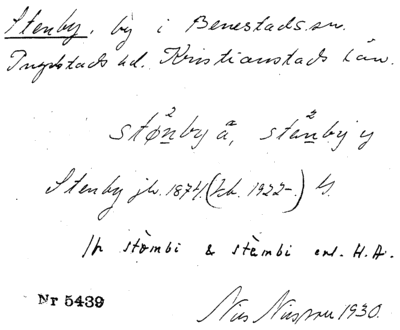 Stenby, by i Benestads sn.
Ingelstads hd. Kristianstads län.
stønby ä, stænby y
Stenby jb. 1874. (kb. 1922-) G.
/h stømbi & stèmbi enl. H.A.
Nr 5439
Nils Nilsson 1930.